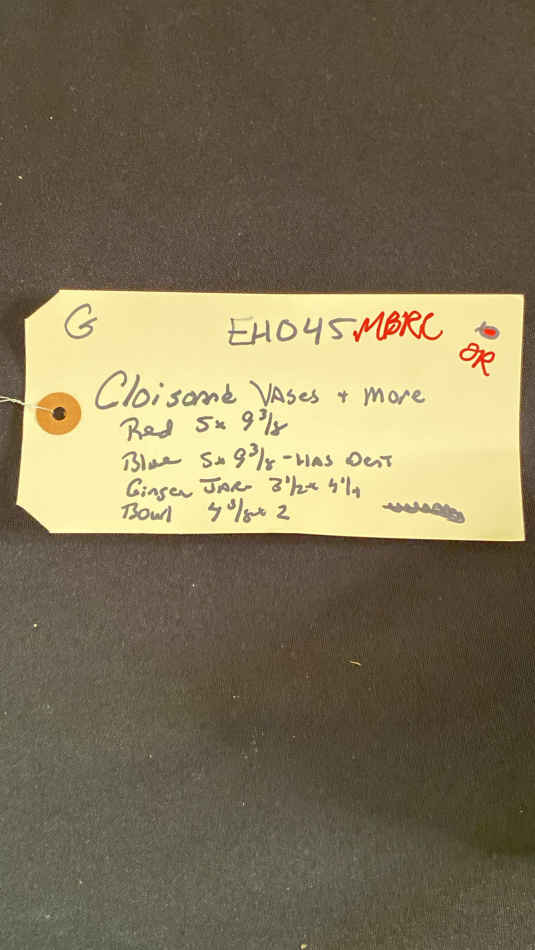 G EHO45 MBRC
OR
Cloisonné Vases + More
Red 5x 9 3/8
Blue 5x 9 3/8 - HAS DENT
Ginger JAR 3 1/2x 4 1/4
Bowl 4 3/8x 2